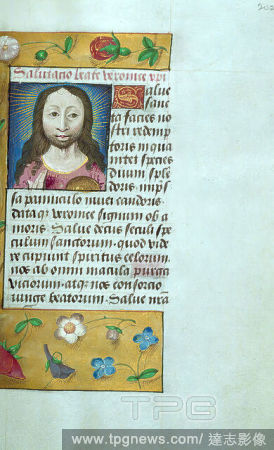 Salutacio beate veronice xpi
Salue
sanc
ta facies no
stri redemp
toris in qua
nitet species
diuini sple
doris impss
sa panniculo niuei candoris
dataqz veronice signum ob a
moris Salue decus seculi spe
culum sanctorum quod vide
re cupiunt spiritus celorum
nos ab omni macula purga
viciorum atqz nos consorcio
iunge beatorum Salue nra
TPG
www.tpgnews.com/ 達志影像